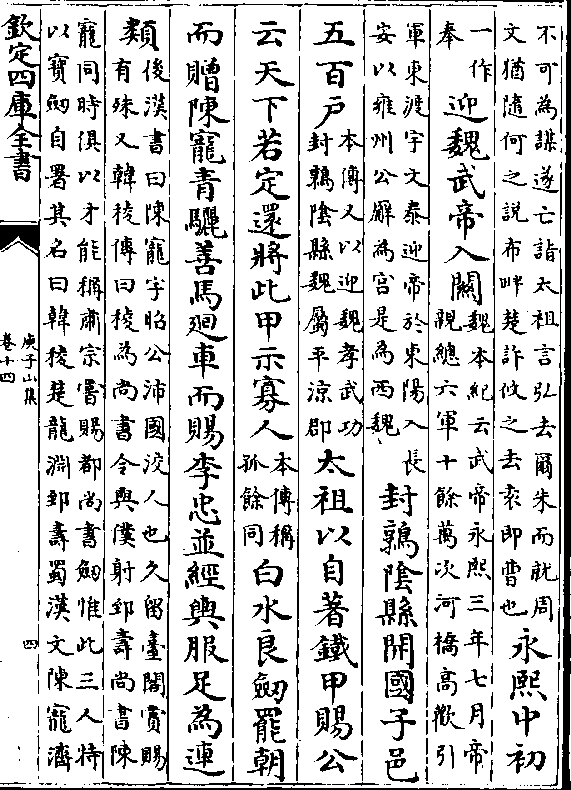 不可為謀遂亡詣太祖言弘去爾朱而就周
文猶隨何之説布畔楚訢攸之去袁即曹也
永熙中初
一作
奉
迎魏武帝入關
魏本紀云武帝永熙三年七月帝
親總六軍十餘萬次河橋高歡引
軍東渡宇文泰迎帝於東陽入長
安以雍州公廨為宮是為西魏
封鶉陰縣開國子邑
五百户
本傳又以迎魏孝武功
封鶉陰縣魏屬平涼郡
太祖以自著鐵甲賜公
云天下若定還將此甲示寡人
本傳稱
孤餘同
白水良劒罷朝
而贈陳寵青驪善馬廻車而賜李忠並經輿服足為連
類
後漢書曰陳寵字昭公沛國洨人也久留臺閣賞賜
有殊又韓稜傳曰稜為尚書令與僕射郅壽尚書陳
寵同時俱以才能稱肅宗嘗賜都尚書劒惟此三人特
以寶劒自署其名曰韓稜楚龍淵郅壽蜀漢文陳寵濟
欽定四庫全書
庾子山集
卷十四
四